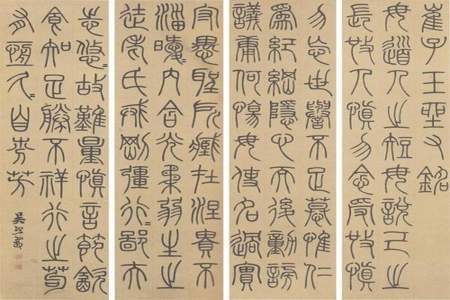 崔子玉座右銘
毋道人之短毋說己之
長施人慎勿念受施慎
勿忘世譽不足慕惟仁
為紀綱隱心而後動謗
議庸何傷毋使名過實
守愚聖所臧在涅貴不
淄曖〻內含光柔弱生之
徒老氏誡剛彊行〻鄙夫
志悠〻故難量慎言節飲
食知足勝不祥行之苟
有恆久〻自芬芳
吳熙載